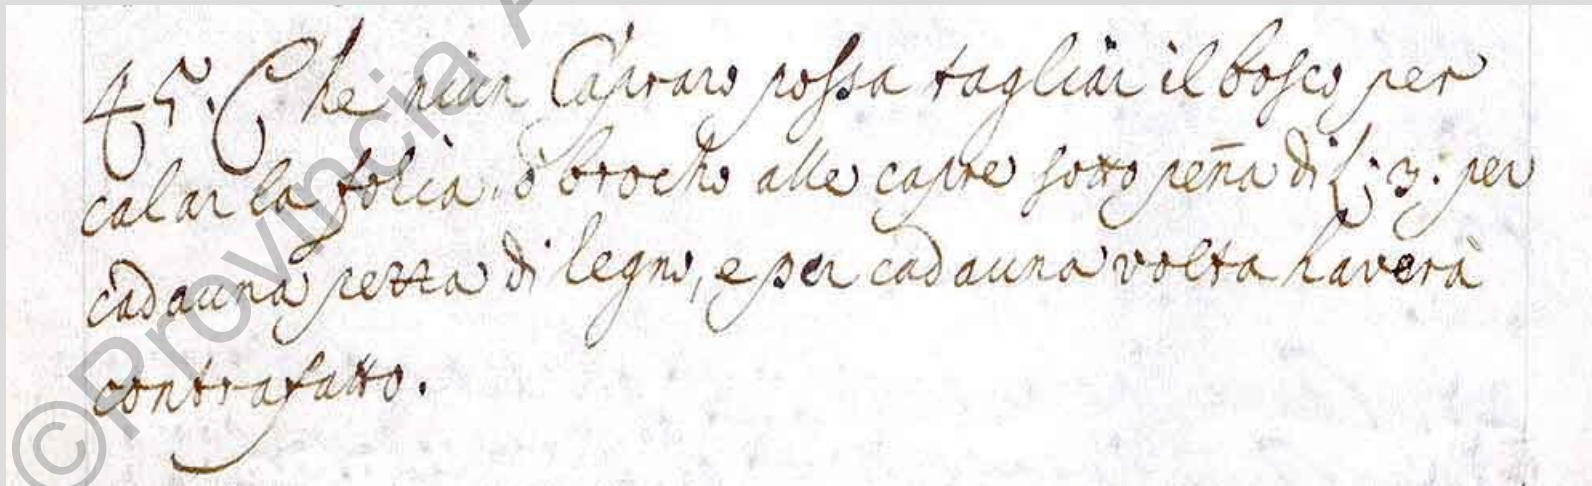 45. Che niun Capraro possa tagliar il bosco per
calar la folia, ò brocho alle capre sotto peña di L: 3: per
cadauna pezza di legno, e per cadauna volta haverà
contrafatto.
©Provincia A